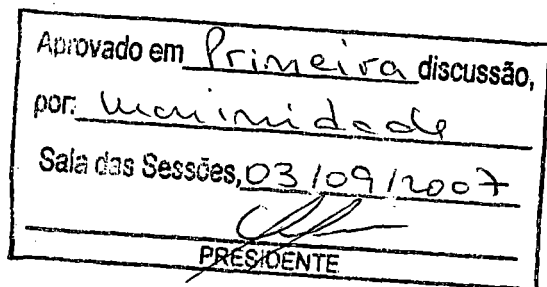 Aprovado em Primeira discussão,
por: Unanimidade
Sala das Sessões, 03/09/2007
PRESIDENTE